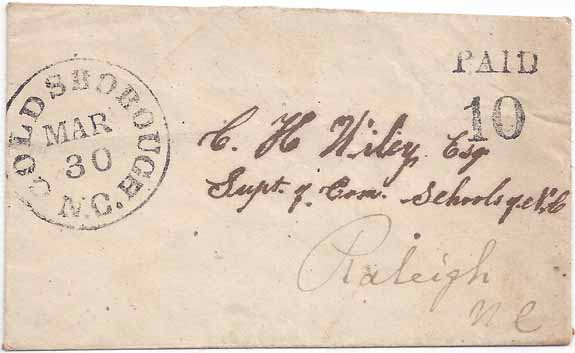 GOLDSBOROUGH N.C.
MAR
30
PAID
10
C. H. Wiley Esq
Supt. of Com. Schools of N.C
Raleigh
N C